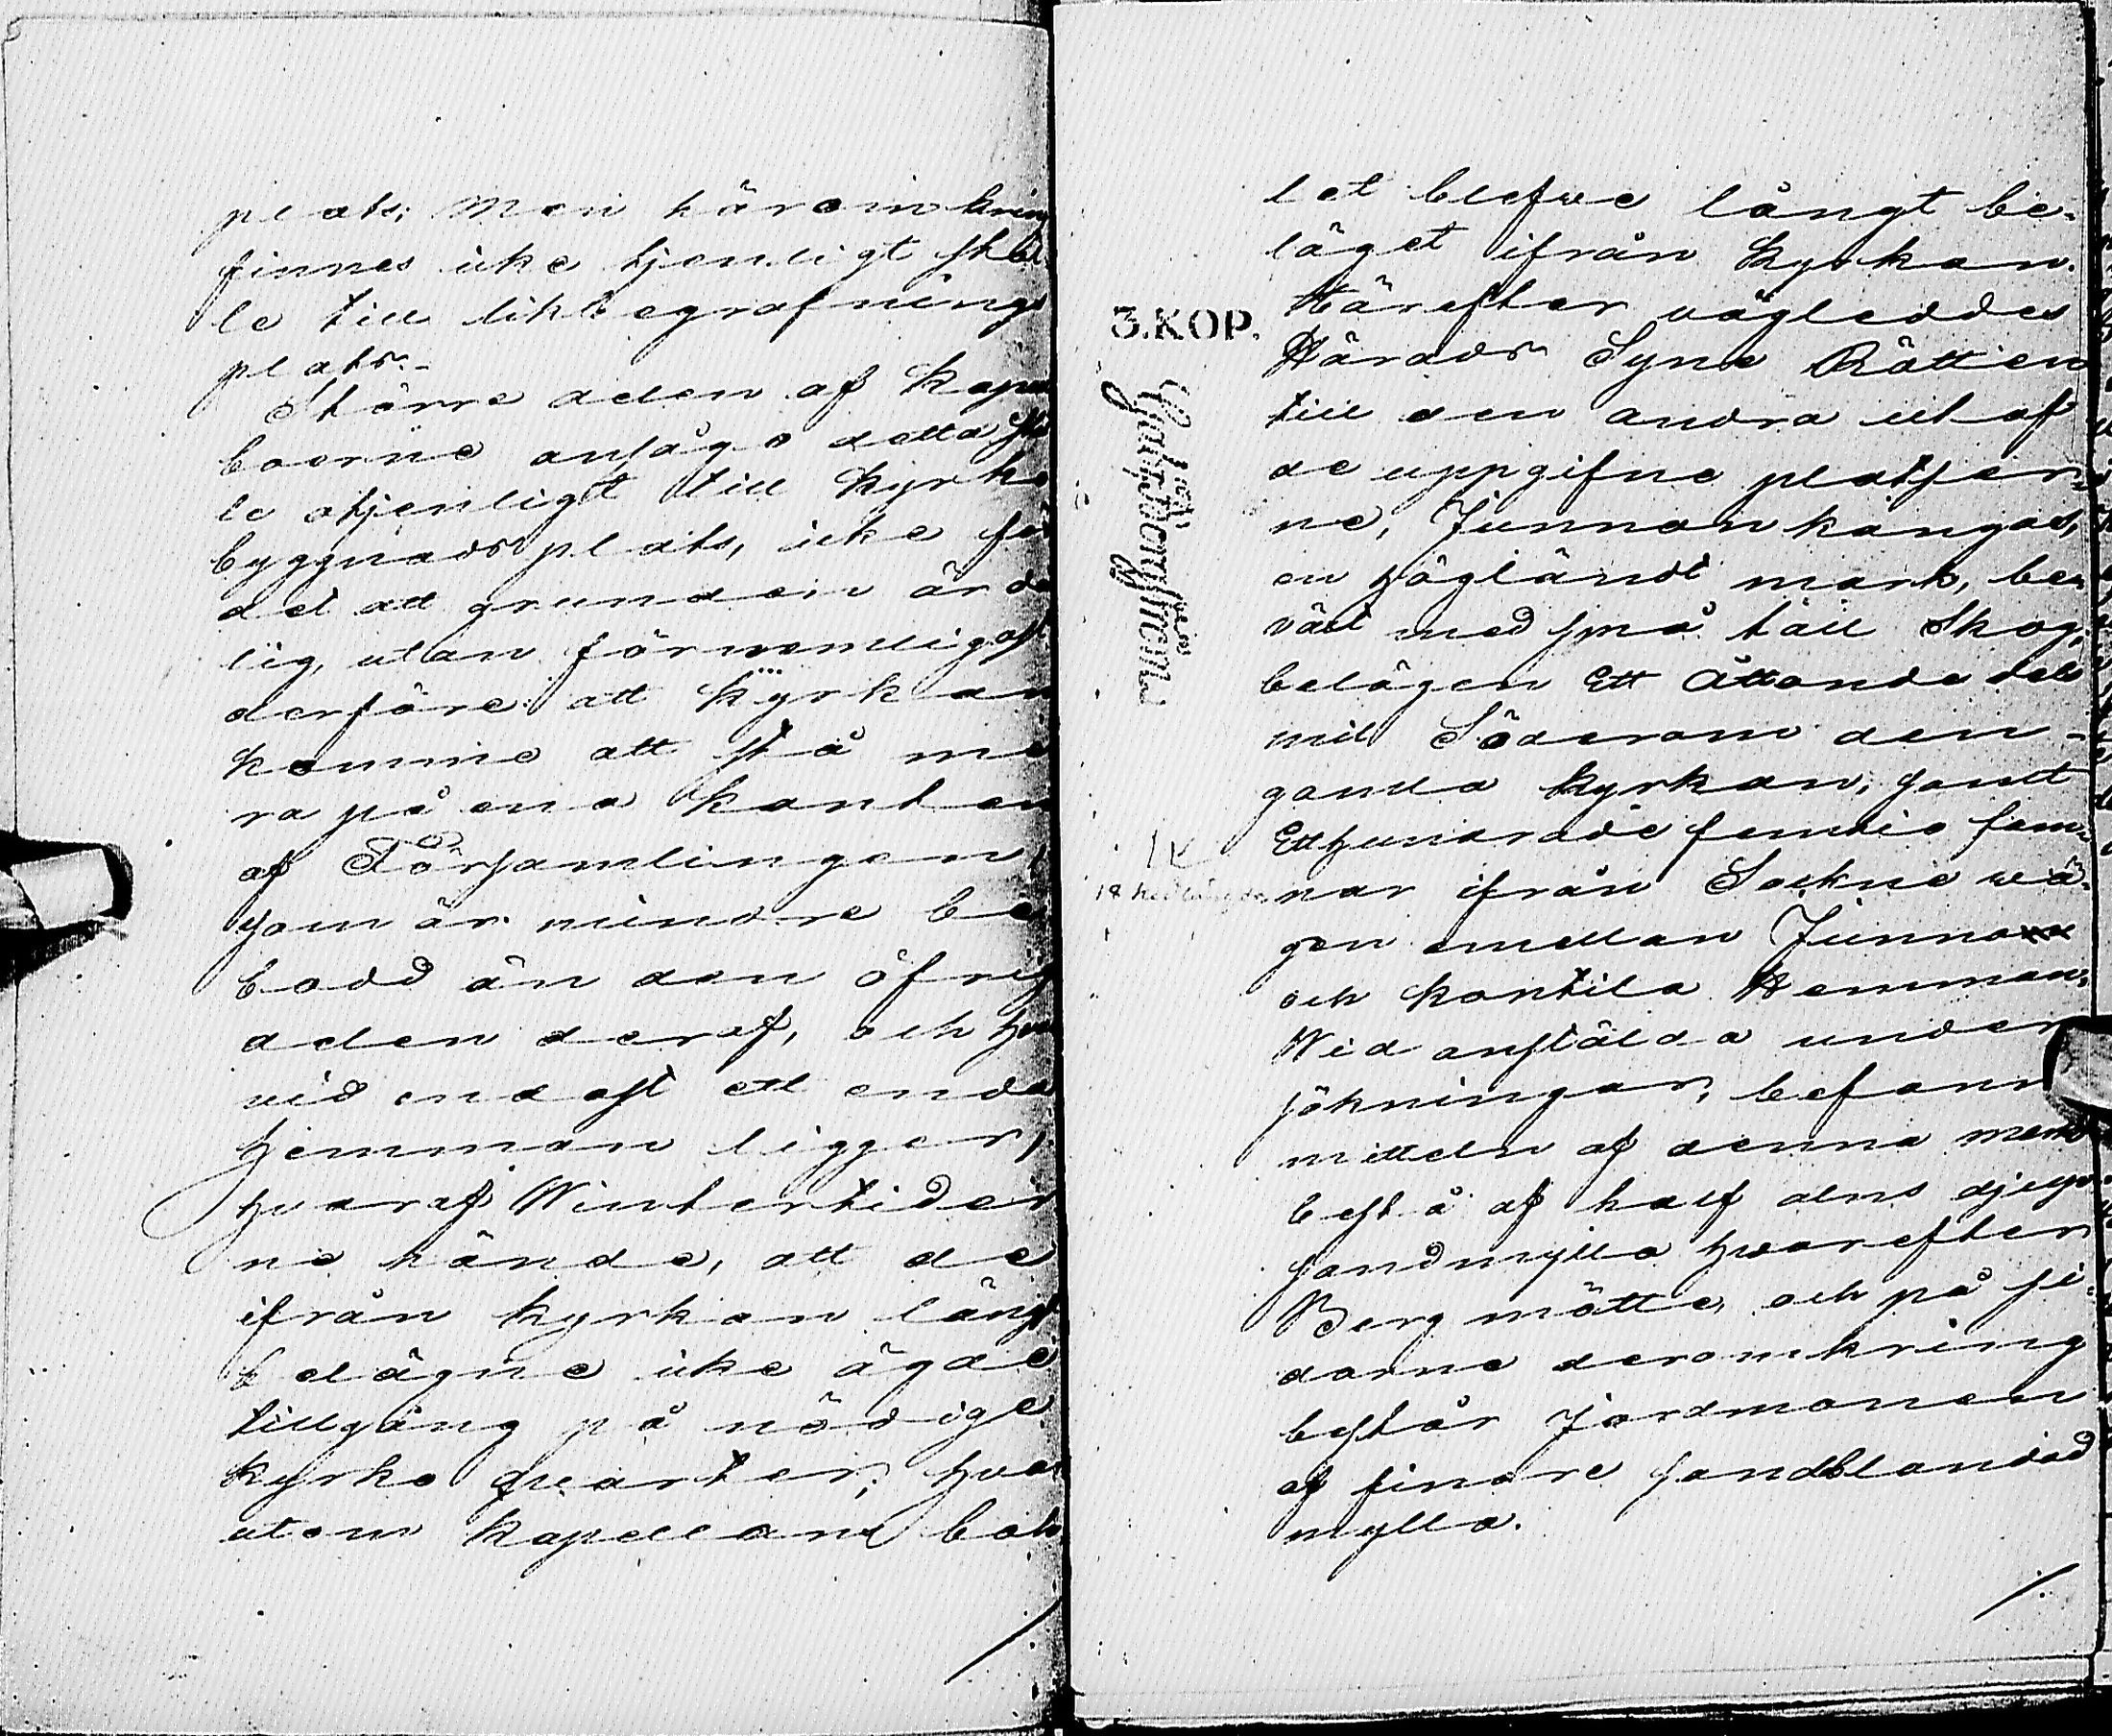 plats; Men häromkring
finnes icke tjenligt stäl
le till likbegrafnings
plats.-
Större delen af Kapell
boerne ansågo detta stäl
le otjenligt till Kyrko
byggnads plats, icke för
det att grunden är då
lig, utan förnemligast
derföre att Kyrkan
komme att stå me
ra på ena Kanten
af Församlingen,
som är mindre be
bodd än den öfrig
delen deraf, och hvar
vid endast ett enda
Hemman ligger,
hvaraf Wintertider
ne hände, att de
ifrån Kyrkan långt
belägne icke ägde
tillgång på nödige
Kyrko quarter; hvar
utom Kapellans bol
let blefwe långt be-
läget ifrån Kyrkan.
Härefter vägleddes
3.KOP.
Härads Syne Rätten
till den andra utaf
de uppgifne platser-
ne, Junnonkangas,
en högländt mark, be-
växt med små tall Skog,
belägen Ett Åttonde dels
mil Söderom den-
gamla Kyrkan, samt
Etthundrade femtio fam-
nar ifrån Sockne wä-
gen emellan Junno
och Kontila Hemman.
Wid anstälda under
sökningar, befanns
mitteln af denna mark
bestå af half alns djup
sandmylla hvarefter
Berg mötte, och på si-
dorne deromkring
består Jordmonen
af finare sandblandad
mylla.
/.